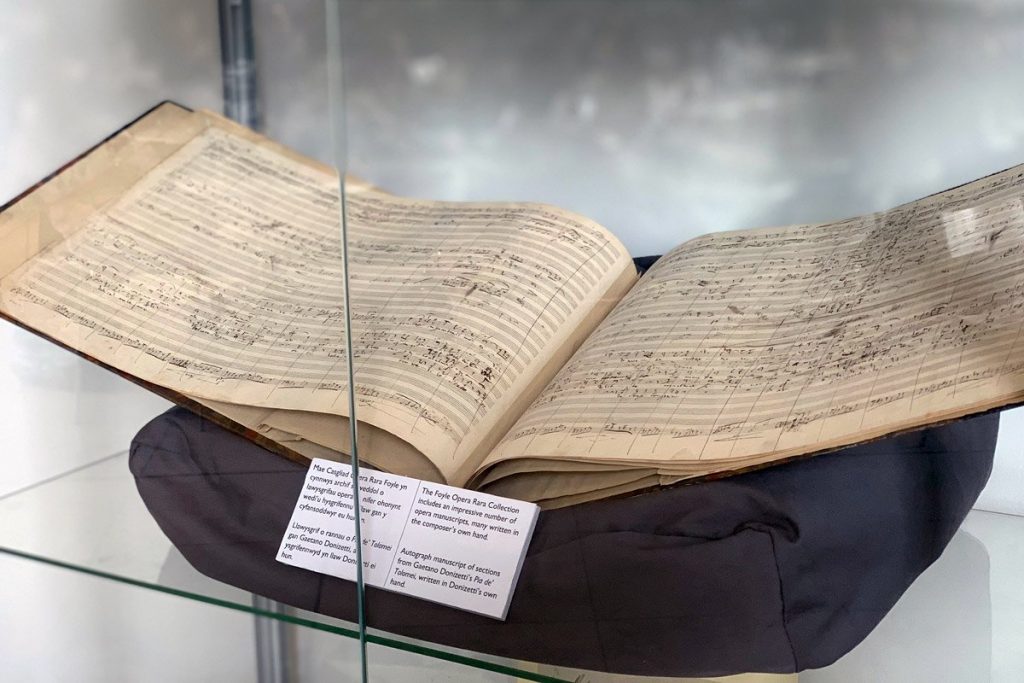 Mae Casgliad Opera Rara Foyle yn
cynnwys archif o
lawysgrifau opera nifer ohonynt
wedi'u hysgrifennu llaw gan y
cyfansoddwr eu
Llawysgrif o rannau o Pia de' Tolomei
gan Gaetano Donizetti, a
ysgrifennwyd yn llaw Donizetti ei
hun.
The Foyle Opera Rara Collection
includes an impressive number of
opera manuscripts, many written in
the composer's own hand.
Autograph manuscript of sections
from Gaetano Donizetti's Pia de'
Tolomei, written in Donizetti's own
hand